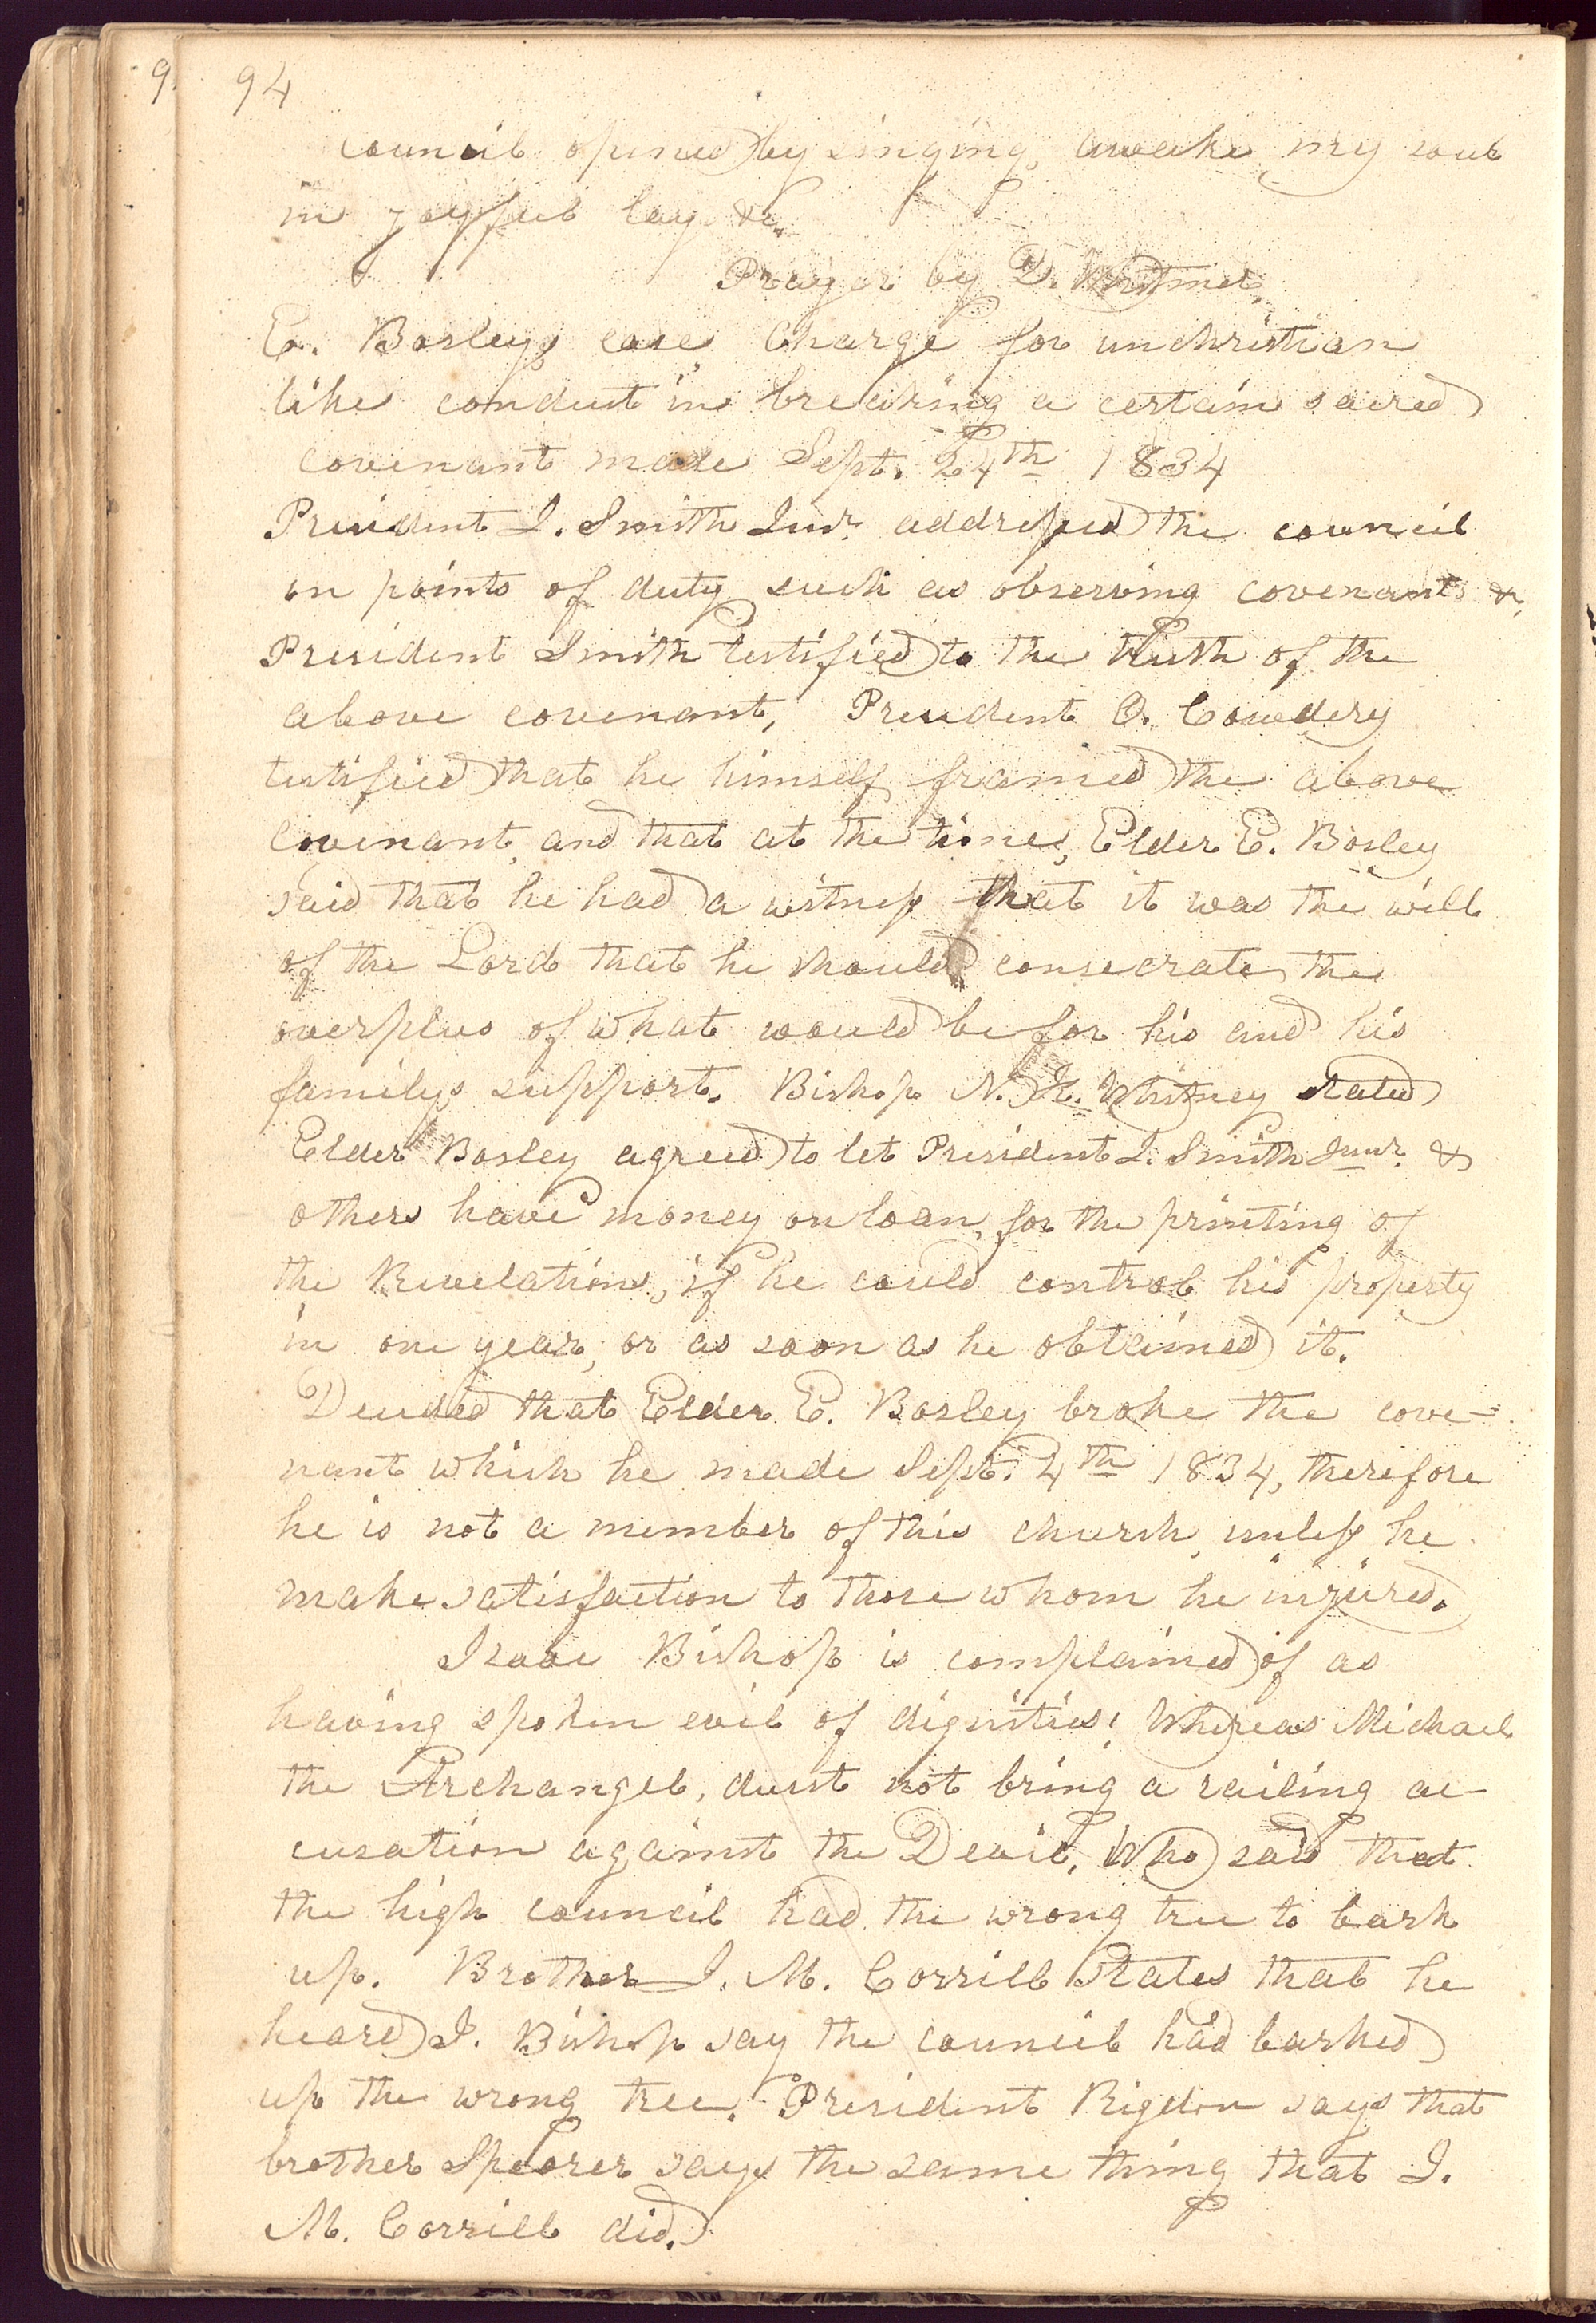 9
94
council opened by singing, awake my soul
in joyful lay &c.
Prayer by D. Whitmer.
E. Bosleys case, Charge for unchristian
like conduct in breaking a certain sacred
covenant made Sept. 24th 1834
President J. Smith Junr. addressed the council
on points of duty such as observing covenants &c.
President Smith testified to the truth of the
above covenant, President O. Cowdery
testified that he himself framed the above
covenant, and that at the time, Elder E. Bosley
said that he had a witness that it was the will
of the Lord that he should consecrate the
overplus of what would be for his and his
familys support. Bishop N. K. Whitney stated
Elder Bosley agreed to let President J. Smith Junr. &
others have money on loan, for the printing of
the Revelations, if he could control his property
in one year, or as soon as he obtained it.
Decided that Elder E. Bosley broke the cove-
nant which he made Sept. 4th 1834, therefore
he is not a member of this church, unless he
make satisfaction to those whom he injured.
Isaac Bishop is complained of as
having spoken evil of dignities! Whereas Michael
the Archangel, durst not bring a railing ac-
cusation against the Devil, Who said that
the high council had the wrong tree to bark
up. Brother J. M. Corrill States that he
heard I. Bishop say the council had barked
up the wrong tree. President Rigdon says that
brother Speorer says the same thing that J.
M. Corrill did.